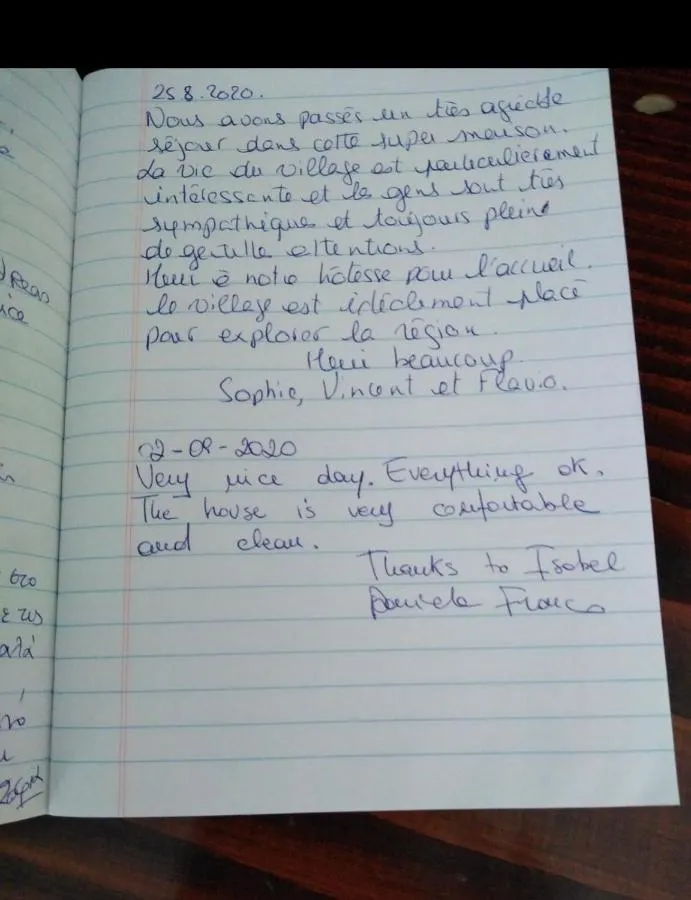 25.8.2020.
Nous avons passés un très agréable
séjour dans cette super maison.
La vie du village est particulièrement
intéressante et le gens sont très
sympathique et toujours plein
de gentille attentions.
Merci à notre hôtesse pour l'accueil.
le village est idéalement placé
pour explorer la région.
Merci beaucoup.
Sophie, Vincent et Flavio.
2-09-2020
Very nice day. Everything ok.
The house is very comfortable
and clean.
Thanks to Isobel
Daniela Franco